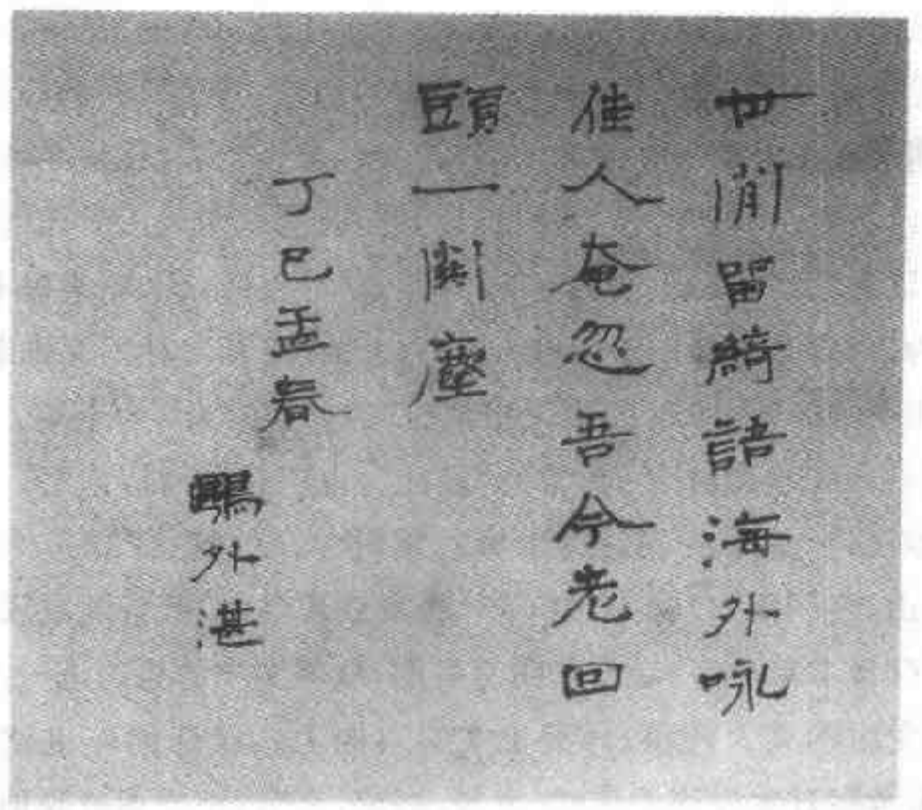 世閒留綺語海外咏
佳人奄忽吾今老回
頭一閧塵
丁巳孟春
鷗外湛